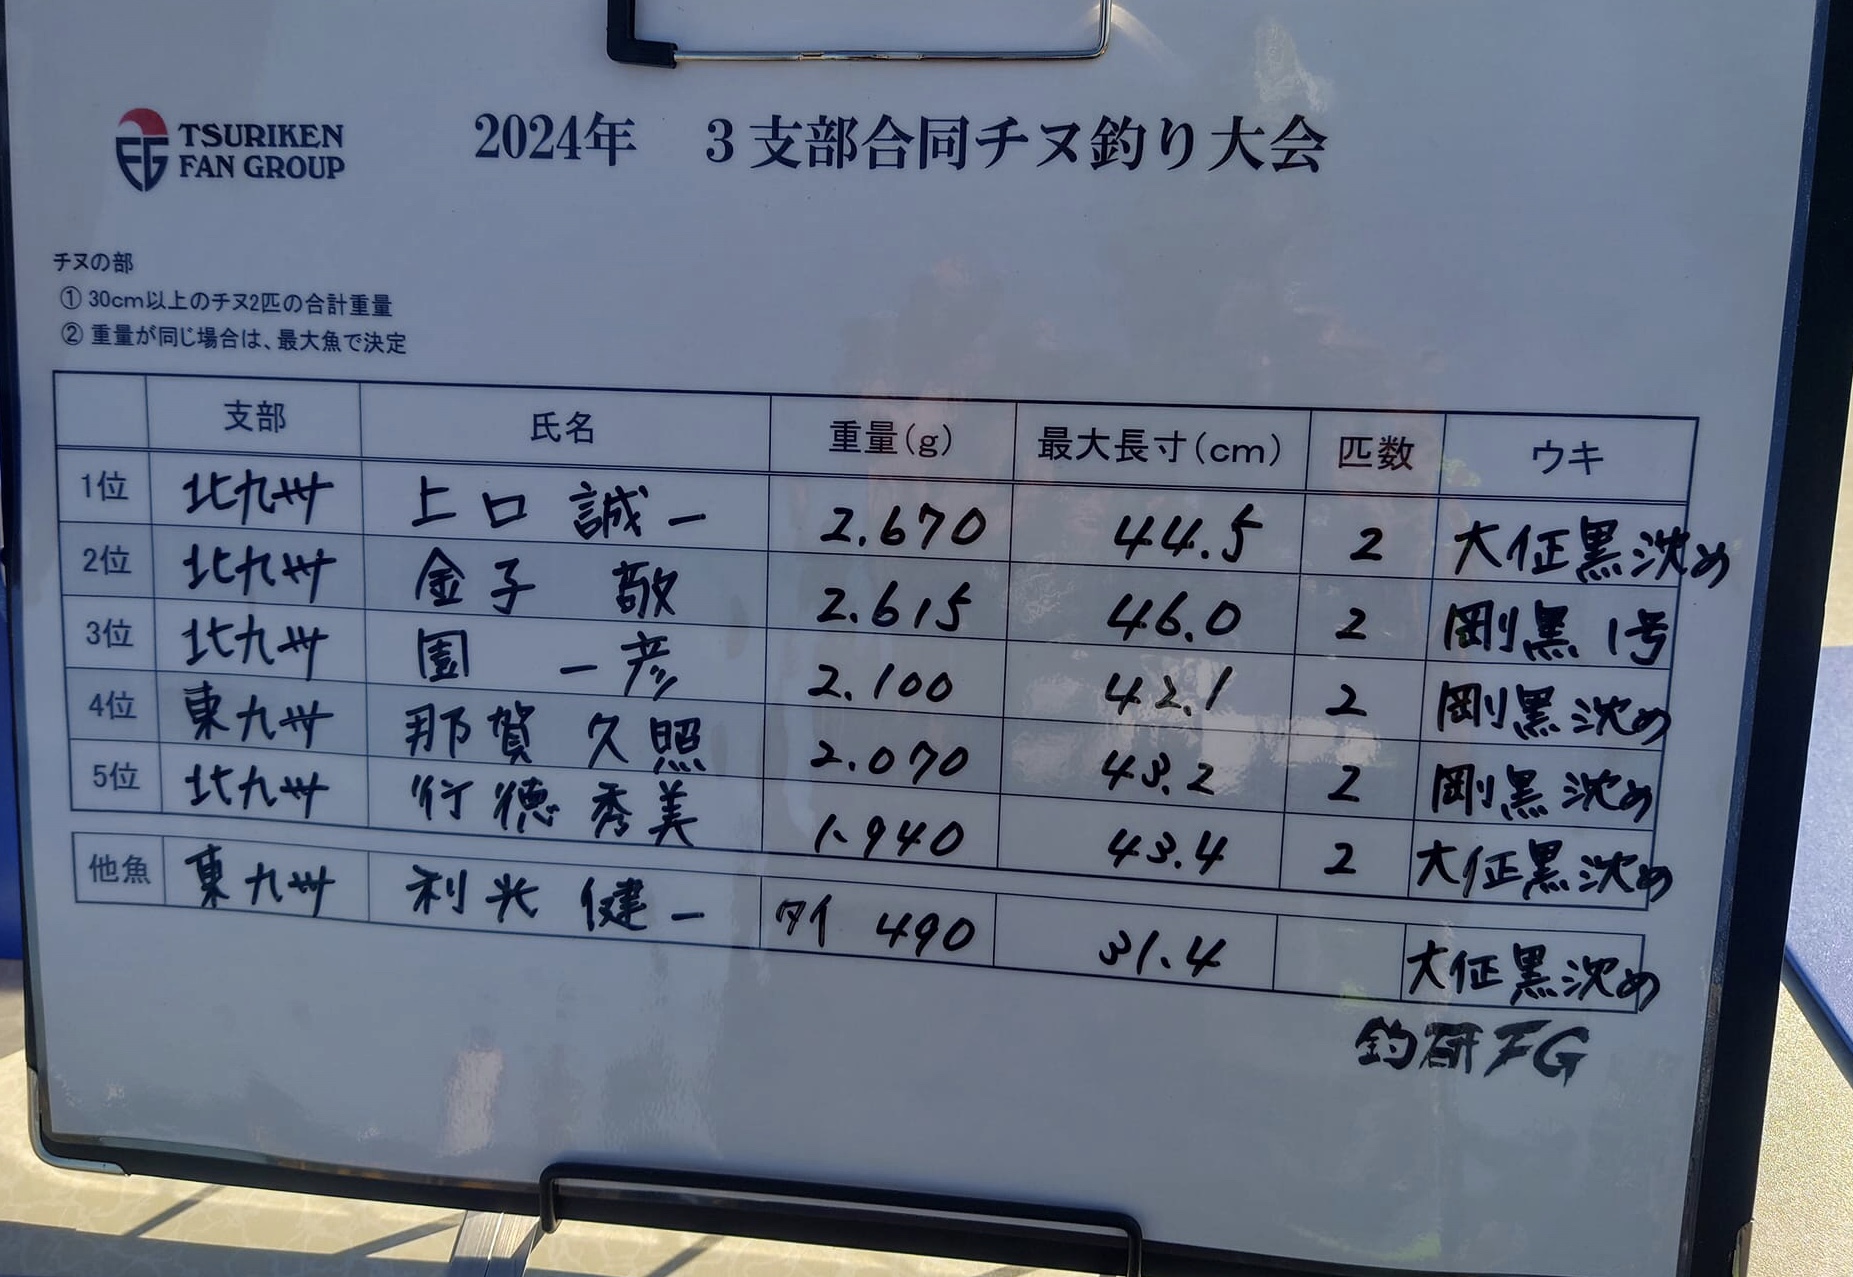 TSURIKEN
FAN GROUP
2024年 3支部合同チヌ釣り大会
チヌの部
① 30cm以上のチヌ2匹の合計重量
② 重量が同じ場合は、最大魚で決定
支部 氏名 重量(g) 最大長寸(cm) 匹数 ウキ
1位 北九州 上口 誠一 2.670 44.5 2 大征黒沈め
2位 北九州 金子 敬 2.615 46.0 2 剛黒 1号
3位 北九州 園 一彦 2.100 42.1 2 剛黒沈め
4位 東九州 那賀 久照 2.070 43.2 2 剛黒沈め
5位 北九州 行徳秀美 1.940 43.4 2 大征黒沈め
他魚 東九州 利光 健一 タイ 490 31.4 大征黒沈め
釣研FG